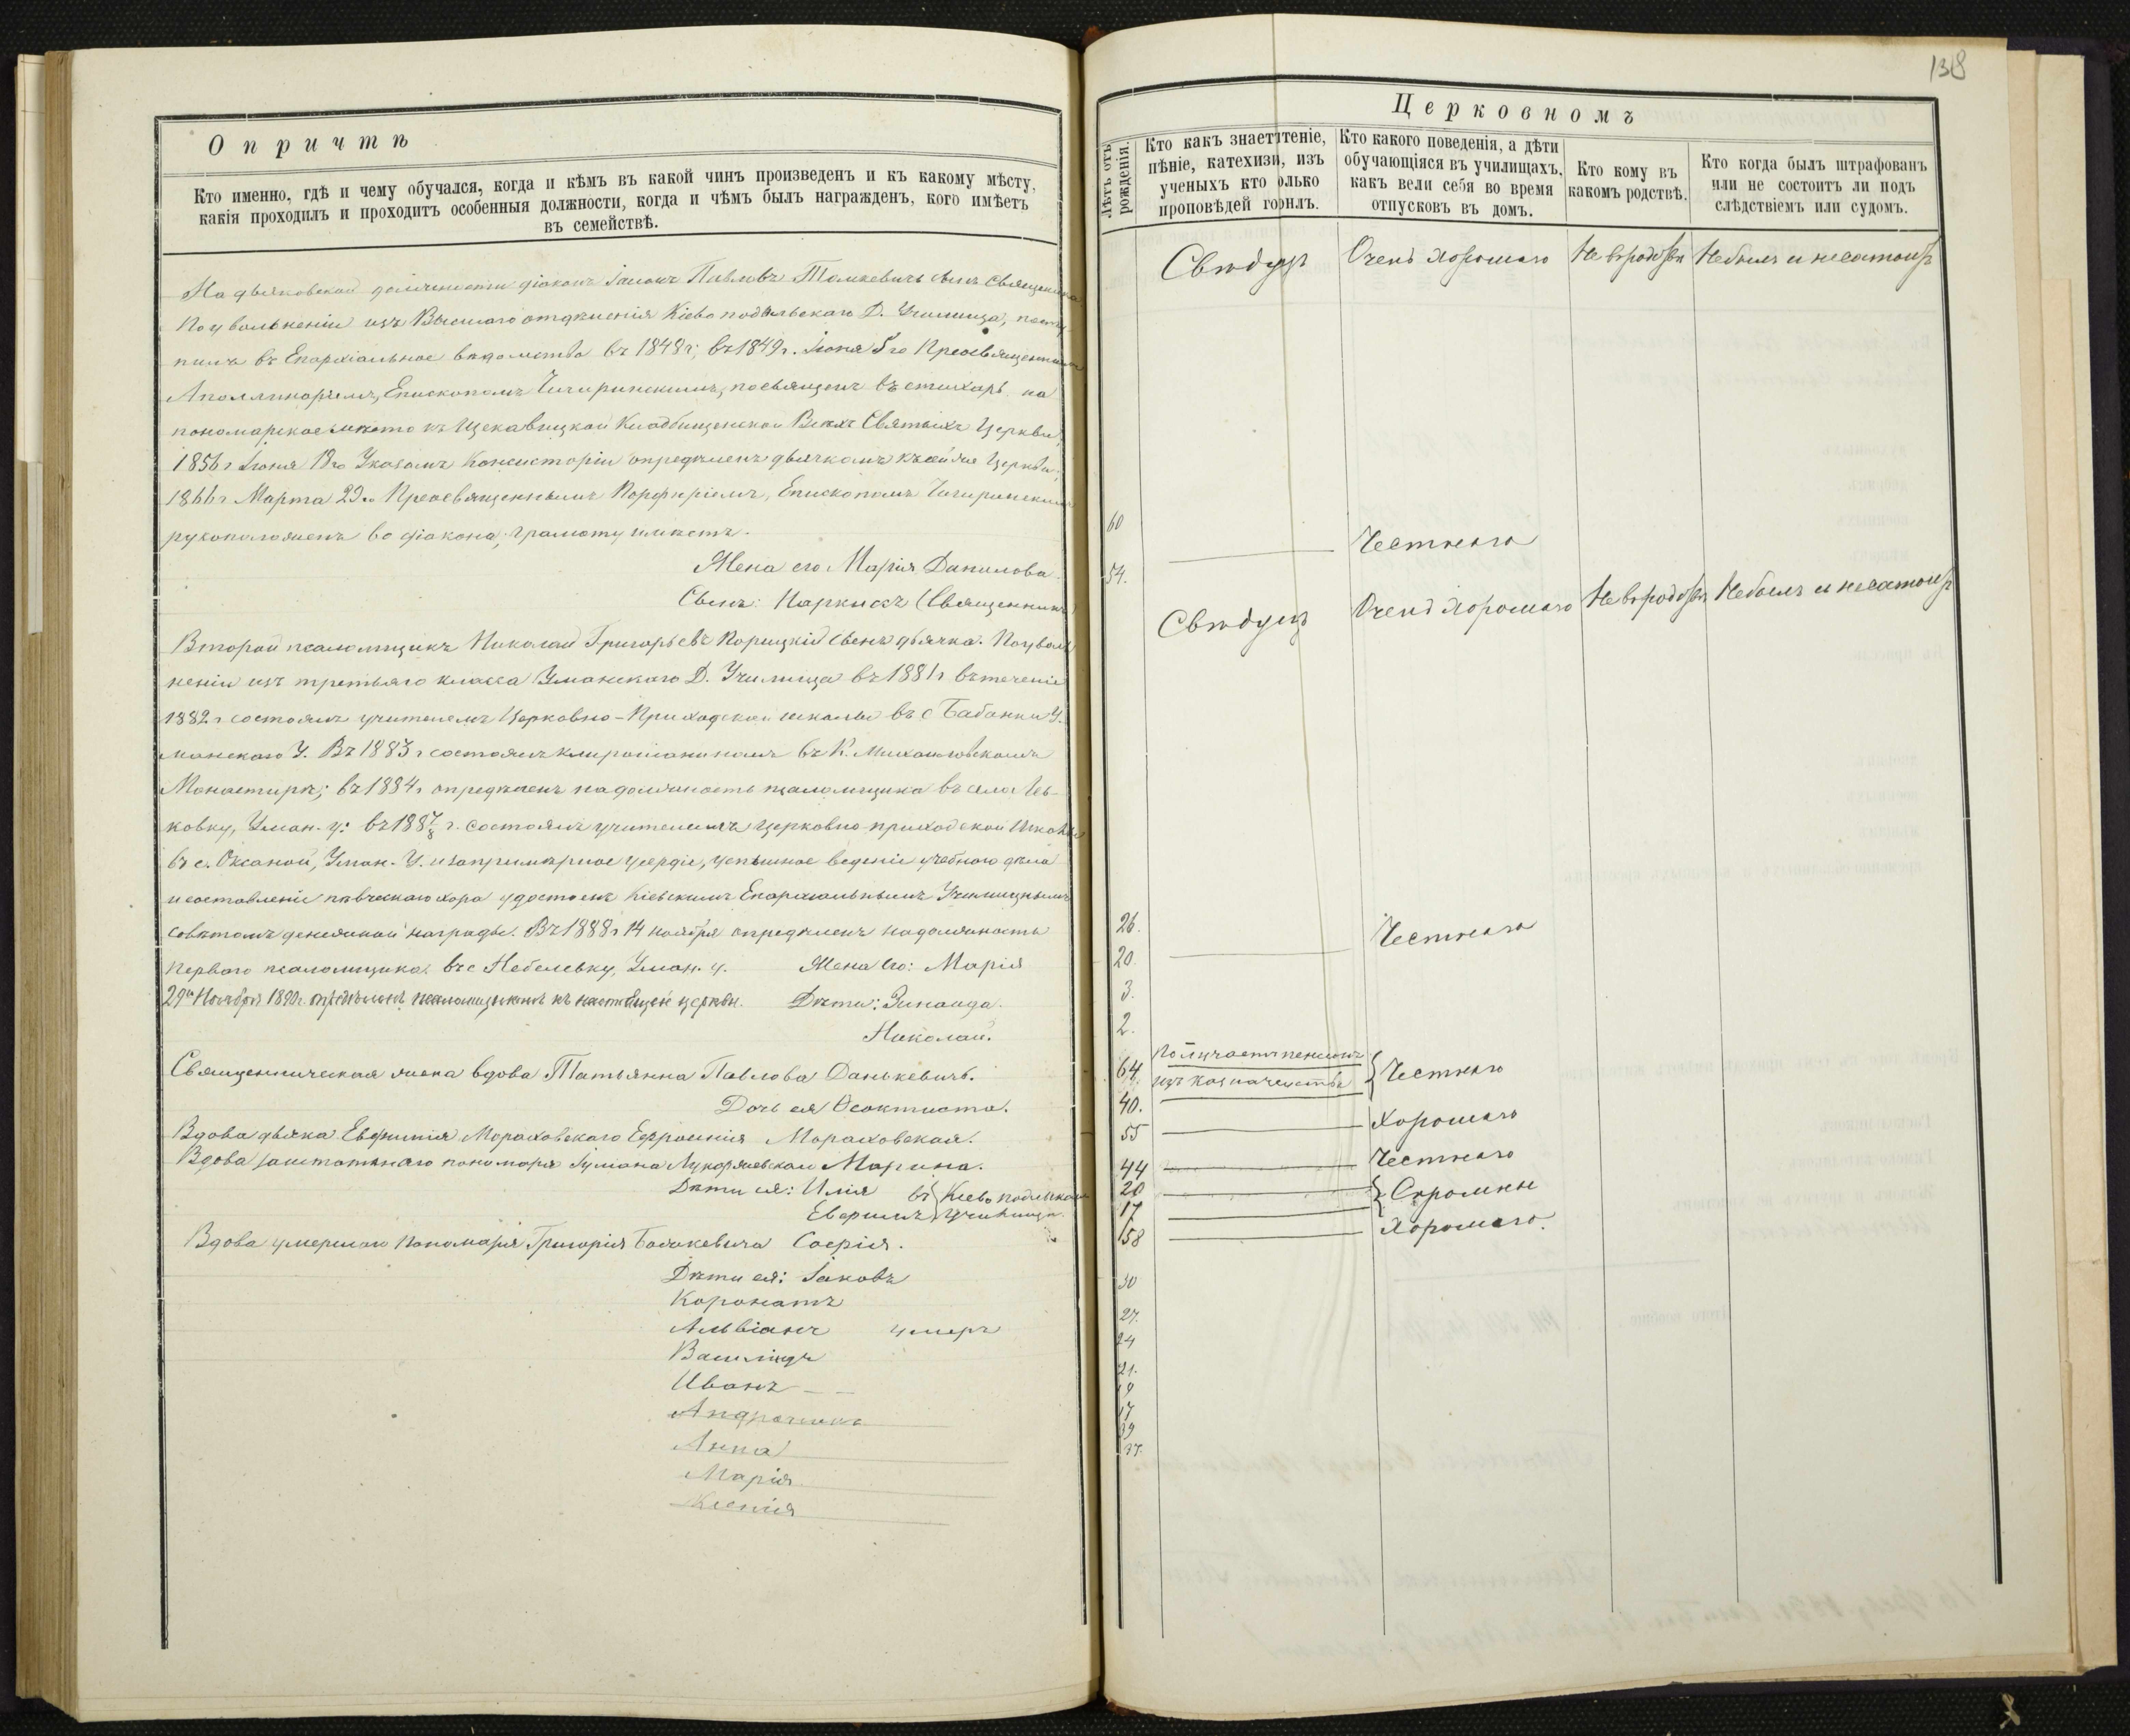 О причтѣ
Кто именно, гдѣ и чему обучался, когда и кѣмъ въ какой чинъ произведенъ и къ какому мѣсту,
какія проходилъ и проходитъ особенныя должности, когда и чѣмъ былъ награжденъ, кого имѣетъ
въ семействѣ.
На дьяковской должности діаконъ Іаковъ Павловъ Томкевичъ сынъ Священника
По увольненіи изъ Высшаго отдѣленія Кіево подольскаго Д. Училища, посту-
пилъ въ Епархіальное вѣдомство въ 1848 г; въ 1849 г. Іюня 5го Преосвященнымъ
Аполлинаріемъ, Епископомъ Чигиринскимъ, посвященъ въ стихарь на
пономарское мѣсто къ Щекавицкой Кладбищенской Всѣхъ Святыхъ Церкви;
1856 г Іюня 18го Указомъ Консисторіи опредѣленъ дьячкомъ къ сей же Церкви,
1866 г Марта 29го Преосвященнымъ Порфиріемъ, Епископомъ Чигиринскимъ
рукоположенъ во діакона; грамоту имѣетъ.
Жена его Марія Данилова.
Сынъ: Наркисъ (Священникъ)
Второй псаломщикъ Николай Григорьевъ Корицкій сынъ дьячка. По уволь
неніи изъ третьяго класса Уманскаго Д. Училища въ 1881 г въ теченіе
1882 г состоялъ учителемъ Церковно-Приходской школы въ с Бабанки У-
манскаго У. Въ 1883 г состоялъ клирошаниномъ въ К. Михайловскомъ
Монастырѣ; въ 1884 г опредѣленъ на должность псаломщика въ село Ле-
ковку, Уман. у: въ 188 7/8 г. состоялъ учителемъ церковно-приходской школы
въ с. Оксаной, Уман. У. и за примѣрное усердіе, успѣшное веденіе учебнаго дѣла
и составленіе пѣвческаго хора удостоенъ Кіевскимъ Епархіальнымъ Училищнымъ
совѣтомъ денежной награды. Въ 1888 г 14 ноября опредѣленъ на должность
перваго псаломщика въ с Небелевку, Уман. у. Жена его: Марія
29го Ноября 1890 г. опредѣленъ псаломщикомъ къ настоящей церкви. Дѣти: Зинаида.
Николай.
Священническая жена вдова Татьянна Павлова Данькевичъ.
Дочь ея Ѳеоктиста.
Вдова дьяка Евфимія Мораховскаго Ефросинія Мораховская.
Вдова заштатнаго пономаря Іуліана Лукашевская Марина.
Дѣти ея: Илія въ } Кіево подольскомъ
Евгеній училищѣ.
Вдова умершаго Пономаря Григорія Базкевича Софія.
Дѣти ея: Іаковъ
Коронатъ
Альвіанъ умеръ
Василидъ
Иванъ
Андроникъ
Анна
Марія
Ксенія
138
Церковномъ
Лѣтъ отъ рожденія.
Кто какъ знаетъ чтеніе,
пѣніе, катехизи, изъ
ученыхъ кто олько
проповѣдей го рилъ.
Кто какого поведенія, а дѣти
обучающіяся въ училищахъ,
какъ вели себя во время
отпусковъ въ домъ.
Кто кому въ
какомъ родствѣ.
Кто когда былъ штрафованъ
или не состоитъ ли подъ
слѣдствіемъ или судомъ.
Свѣдущъ Очень хорошаго Не въ родствѣ Не былъ и не состоитъ
60
54. Честнаго
Свѣдущъ Очень хорошаго Не въ родствѣ Не былъ и не состоитъ
26.
20. Честнаго
3.
2.
64 Получаетъ пенсіонъ изъ казначейства } Честнаго
40.
55 Хорошаго
44 Честнаго
20 } Скромны
17
58 Хорошаго.
30
27.
24
21.
19
17
39
37.